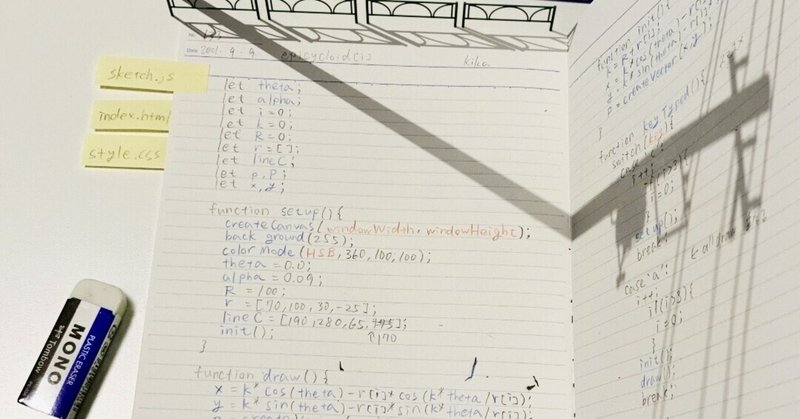 sketch.js
index.html
style.css
Date 2021・9・9 epicycloid[i] kika
let theta;
let alpha;
let i=0;
let k=0;
let R=0;
let r=[];
let lineC;
let p,P;
let x,y;
function setup(){
createCanvas(windowWidth, windowHeight);
back ground(255);
color Mode(HSB,360,100,100);
theta = 0.0;
alpha = 0.09;
R = 100;
r = [70,100,30,-25];
lineC = [190,280,65,];
↑170
init();
}
function draw(){
x = k* cos(theta)-r[i]* cos(k* theta/r[i]);
y = k* sin(theta)-r[i]*sin(k* theta/r[i]);
function init(){
k = R+r[i];
x = k*cos(theta)-r
y = k*sin(theta)-r
p = createVector(x,y);
}
function keyTyped(){
switch(key){
i++;
i=0;
}
setup();
break;
case 'a':
i++;
if(i>3){
i=0;
}
init();
draw();
break;
MONO
PLASTIC ERASER
Tombow